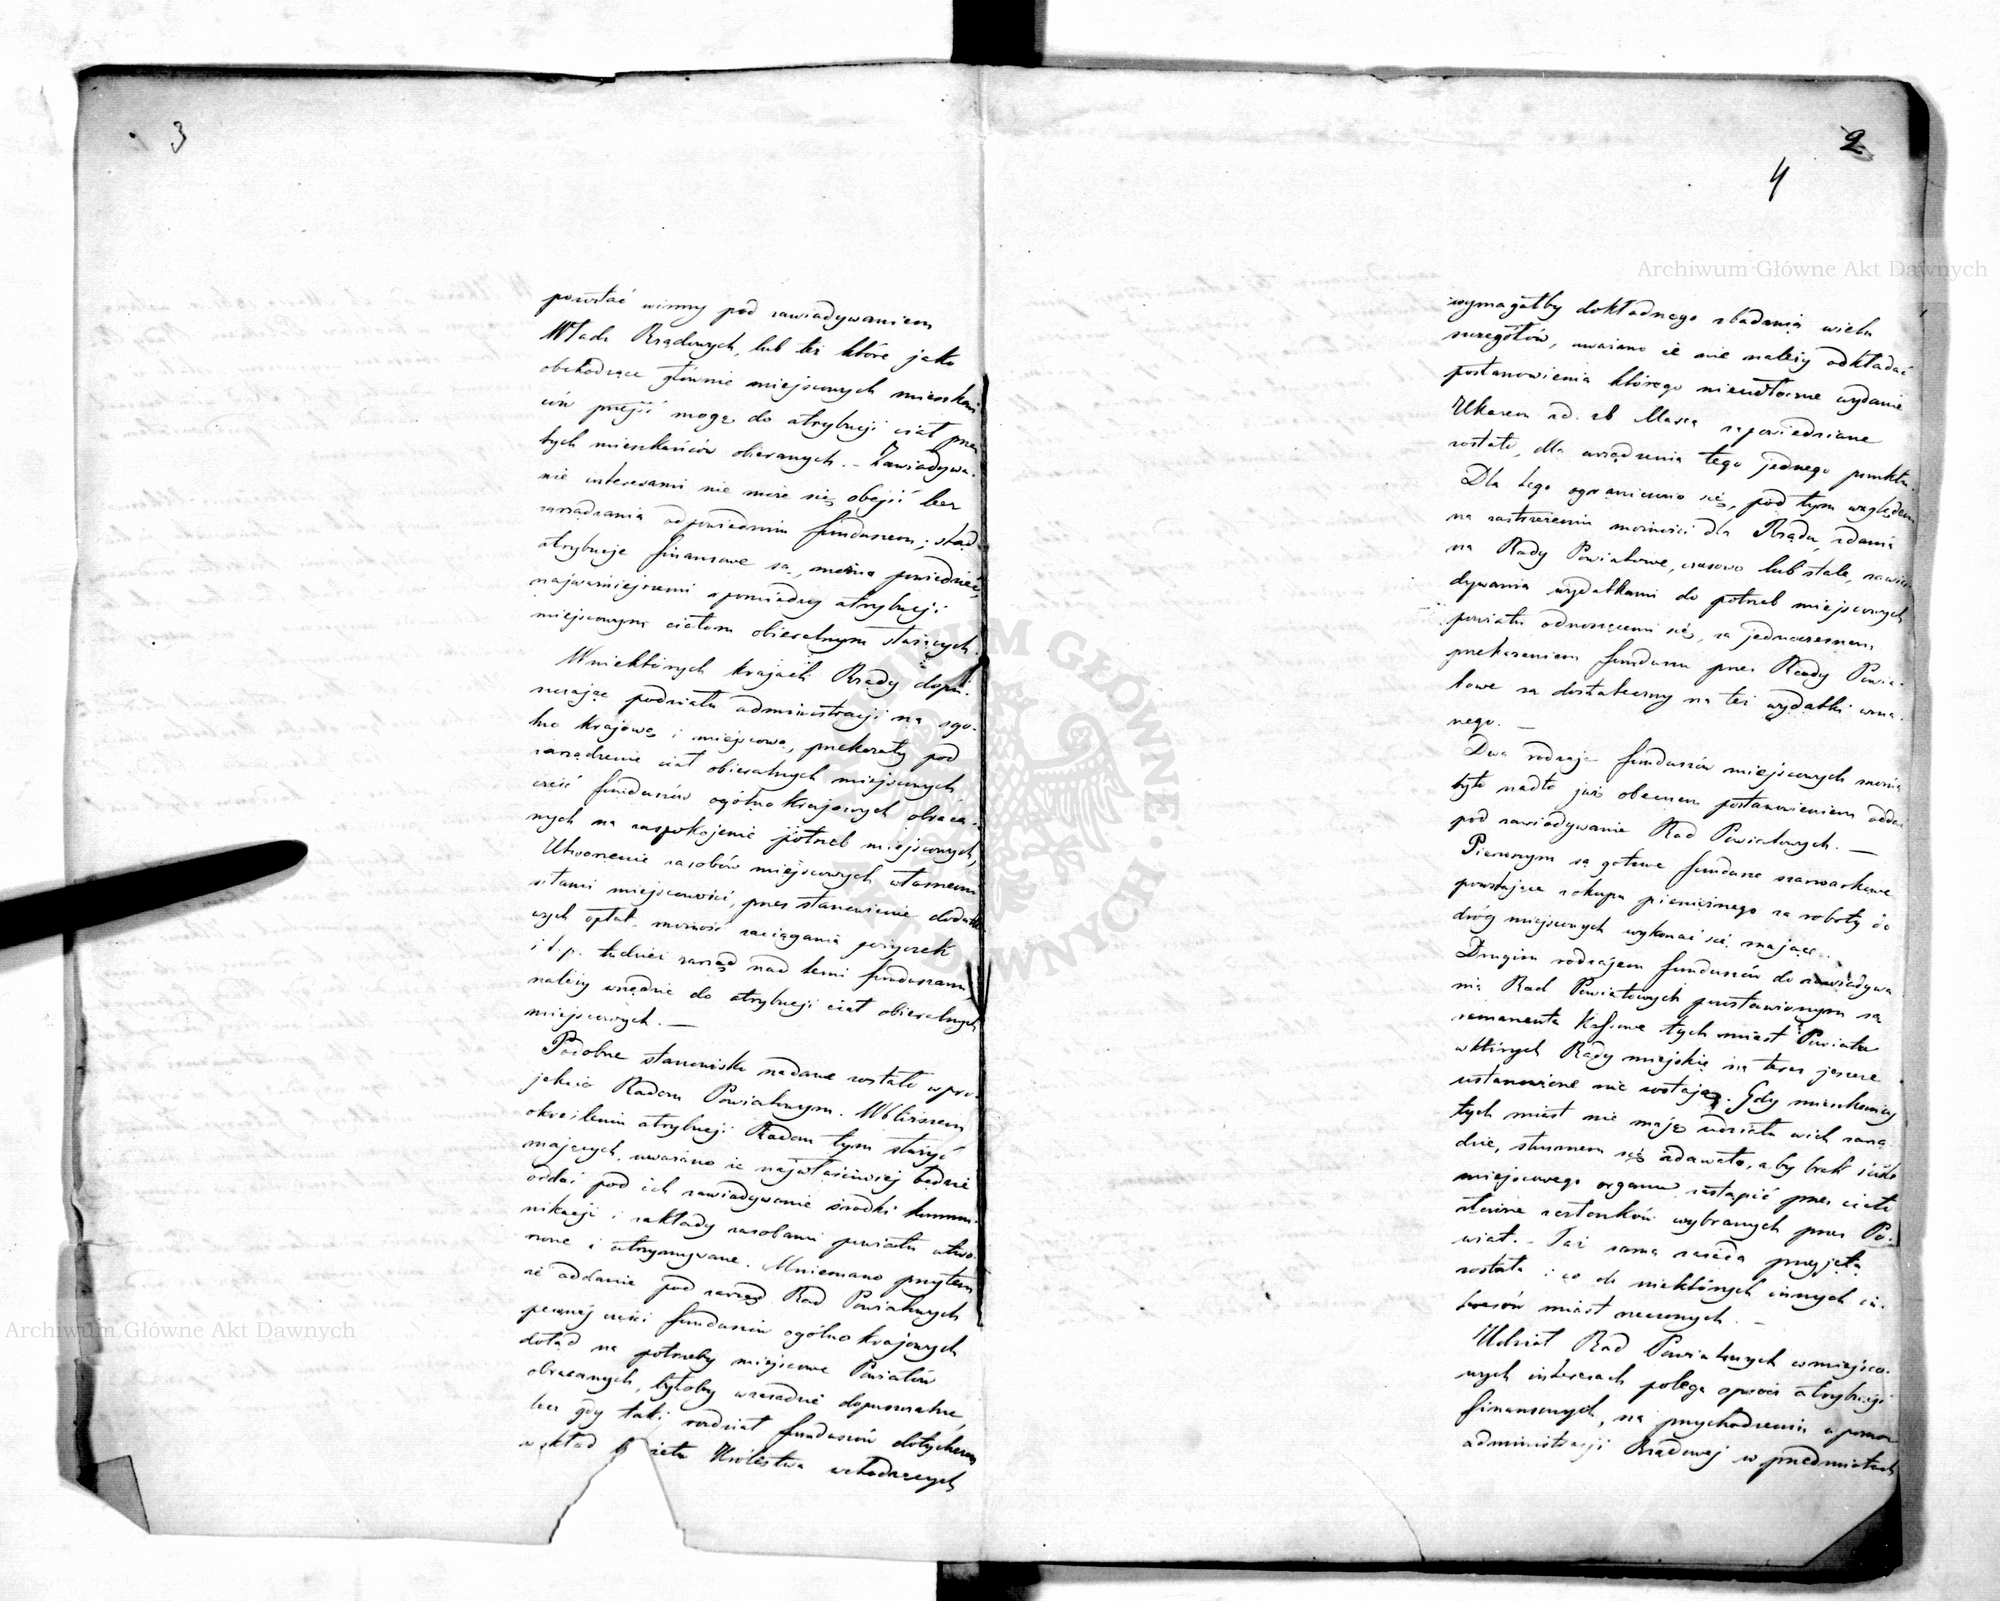 3
pozostać winny pod zawiadywaniem
Władz Rządowych, lub też które jako
obchodzące głównie miejscowych mieszkań
ców przejść mogą do atrybucji ciał przez
tych mieszkańców obieranych. – Zawiadywa-
nie interesami nie może się obejść bez
zarządzania odpowiednim funduszem; stąd
atrybucje finansowe są, można powiedzieć,
najważniejszemi z pomiędzy atrybucji
miejscowym ciałom obieralnym służących.
W niektórych krajach Rządy dopu-
szczając podziału administracji na ogó-
lno krajową i miejscową, przekazały pod
zarządzenie ciał obieralnych miejscowych
część funduszów ogólno krajowych obraca-
nych na zaspokojenie potrzeb miejscowych,
Utworzenie zasobów miejscowych własnemi
siłami miejscowości, przez stanowienie dodatko
wych opłat, możność zaciągania pożyczek
i t. p. tudzież zarząd nad temi funduszami,
należy wszędzie do atrybucji ciał obieralnych
miejscowych. —
Podobne stanowisko nadane zostało w pro-
jekcie Radom Powiatowym. W bliższem
określeniu atrybucji Radom tym służyć
mających, uważano że najwłaściwiej będzie
oddać pod ich zawiadywanie środki kommu-
nikacji i zakłady zasobami powiatu utwo-
rzone i utrzymywane. Mniemano przytem
że oddanie pod zarząd Rad Powiatowych
pewnej części funduszów ogólno krajowych
dotąd na potrzeby miejscowe Powiatów
obracanych, byłoby w zasadzie dopuszczalne,
lecz gdy taki rozdział funduszów dotychczas
w skład Królestwa wchodzących
2
4
wymagałby dokładnego zbadania wielu
szczegółów, uważano że nie należy odkładać
postanowienia którego niezwłoczne wydanie
Ukazem z d. 26 Marca zapowiedziane
zostało, dla urządzenia tego jednego punktu.
Dla tego ograniczono się, pod tym względem
na zastrzeżeniu możności dla Rządu, zdania
na Rady Powiatowe, czasowo lub stale, zawia
dywania wydatkami do potrzeb miejscowych
powiatu odnoszącemi się, za jednoczesnem,
przekazaniem funduszu przez Rady Powia-
towe za dostateczny na też wydatki uzna-
nego. —
Dwa rodzaje funduszów miejscowych można
było nadto już obecnem postanowieniem oddać
pod zawiadywanie Rad Powiatowych. —
Pierwszym są gotowe fundusze szarwarkowe
powstające z okupu pieniężnego za roboty do
dróg miejscowych wykonać się mające.
Drugim rodzajem funduszów do zawiadywa
nia Rad Powiatowych pozostawionym są
remanenta Kassowe tych miast Powiatu
w których Rady miejskie na teraz jeszcze
ustanowione nie zostają. Gdy mieszkańcy
tych miast nie mają udziału w ich zarzą
dzie, słusznem się zdawało, aby brak ściśle
miejscowego organu, zastąpić przez ciało
złożone z członków wybranych przez Po-
wiat. – Taż sama zasada przyjętą
została i co do niektórych innych in-
teresów miast rzeczonych. —
Udział Rad Powiatowych w miejsco-
wych interesach polega oprócz atrybucji
finansowych, na przychodzeniu z pomocą
administracji Rządowej w przedmiotach
Archiwum Główne Akt Dawnych
Archiwum Główne Akt Dawnych
ARCHIWUM GŁÓWNE AKT DAWNYCH